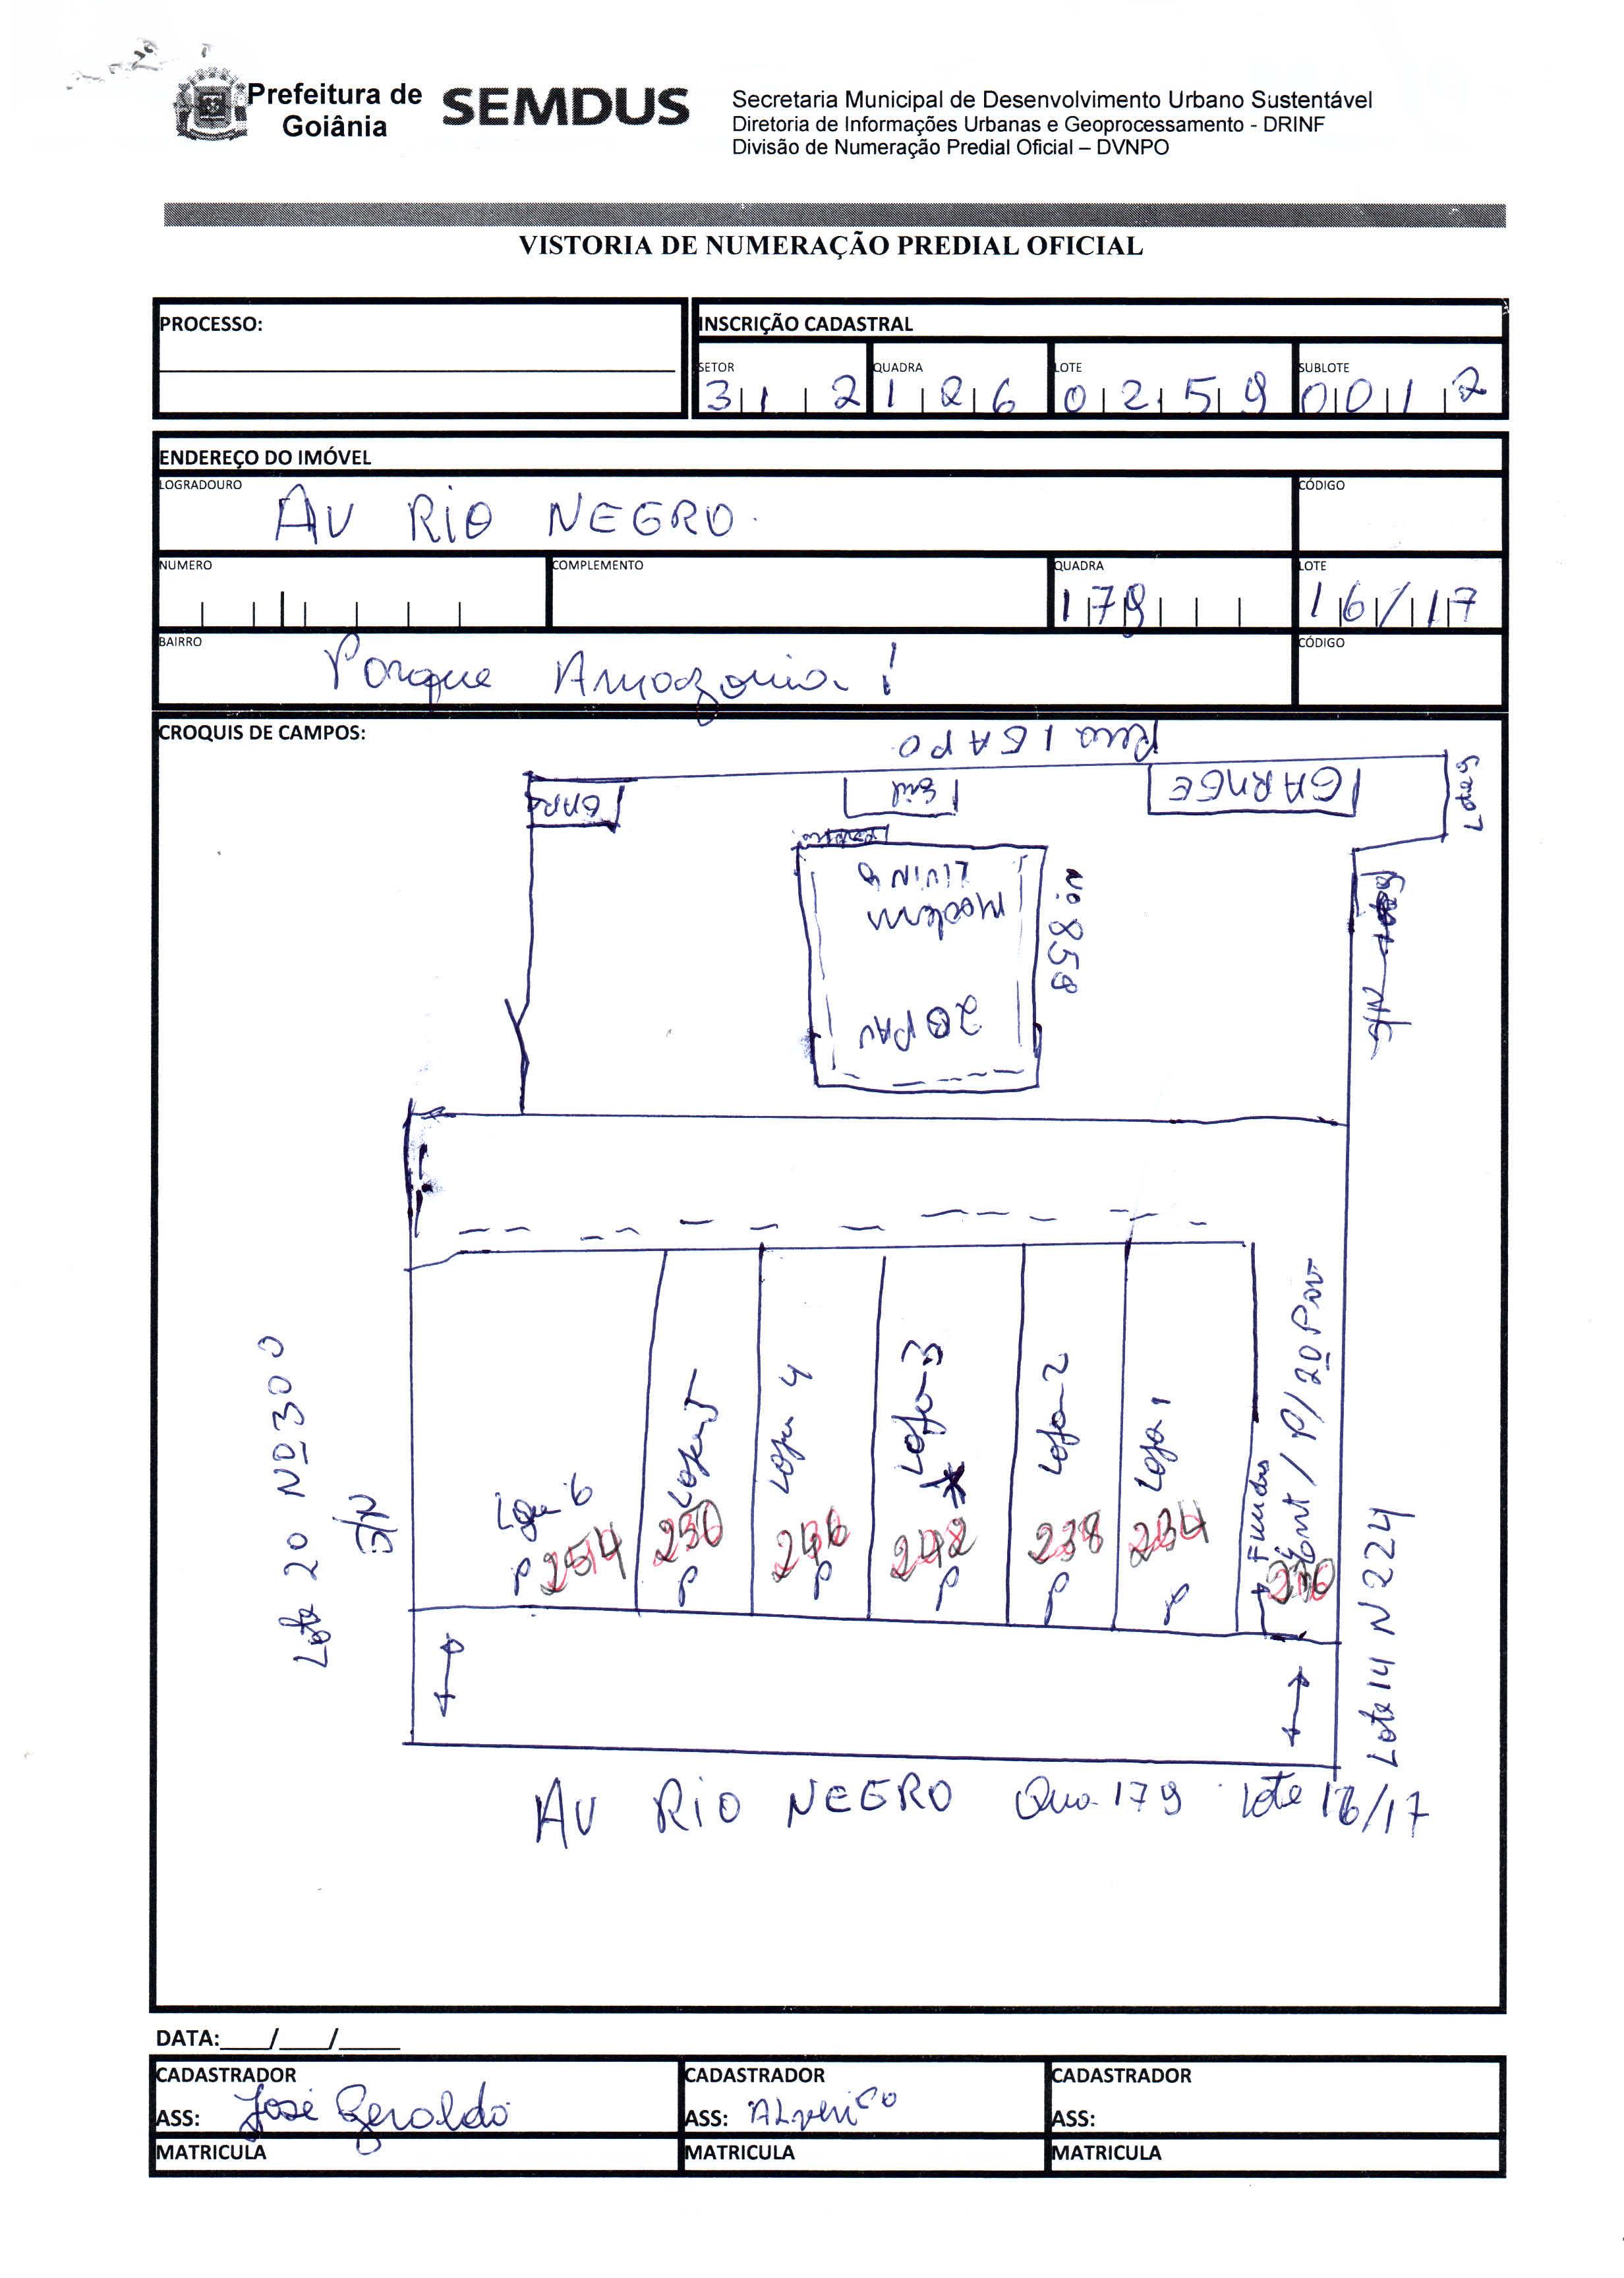 Prefeitura de Goiânia
SEMDUS
Secretaria Municipal de Desenvolvimento Urbano Sustentável
Diretoria de Informações Urbanas e Geoprocessamento - DRINF
Divisão de Numeração Predial Oficial – DVNPO
VISTORIA DE NUMERAÇÃO PREDIAL OFICIAL
PROCESSO:
INSCRIÇÃO CADASTRAL
SETOR QUADRA LOTE SUBLOTE
31 2 126 0259 0012
ENDEREÇO DO IMÓVEL
LOGRADOURO CÓDIGO
AV RIO NEGRO
NUMERO COMPLEMENTO QUADRA LOTE
179 16/17
BAIRRO CÓDIGO
Parque Amazonia !
CROQUIS DE CAMPOS:
Rua IGAPO
GARA
GARAGE
Lote 9
LIVING
Modern
20 PAV
Nº 859
S/N
Lote 20 Nº 300
S/N
Loja 6
P 254
Loja 5
250 P
Loja 4
246 P
Loja 3
242 P
Loja 2
238 P
Loja 1
234 P
Fundos
Ent / P/ 2º Pav
230
Lote 14 N 224
AV RIO NEGRO Qua. 179 Lote 16/17
DATA:____/____/_____
CADASTRADOR CADASTRADOR CADASTRADOR
ASS: José Geraldo ASS: ASS:
MATRICULA MATRICULA MATRICULA